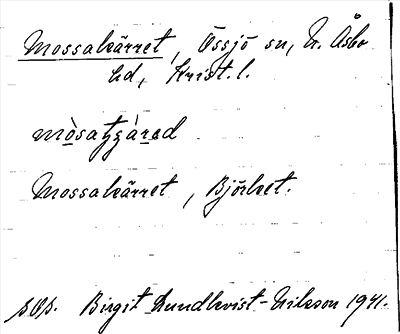 Mossakärret, Össjö sn, N. Åsbo
hd, Krist. l.
Mossakärret, Björket.
s. 8. Birgit Lundkvist-Nilsson 1941.